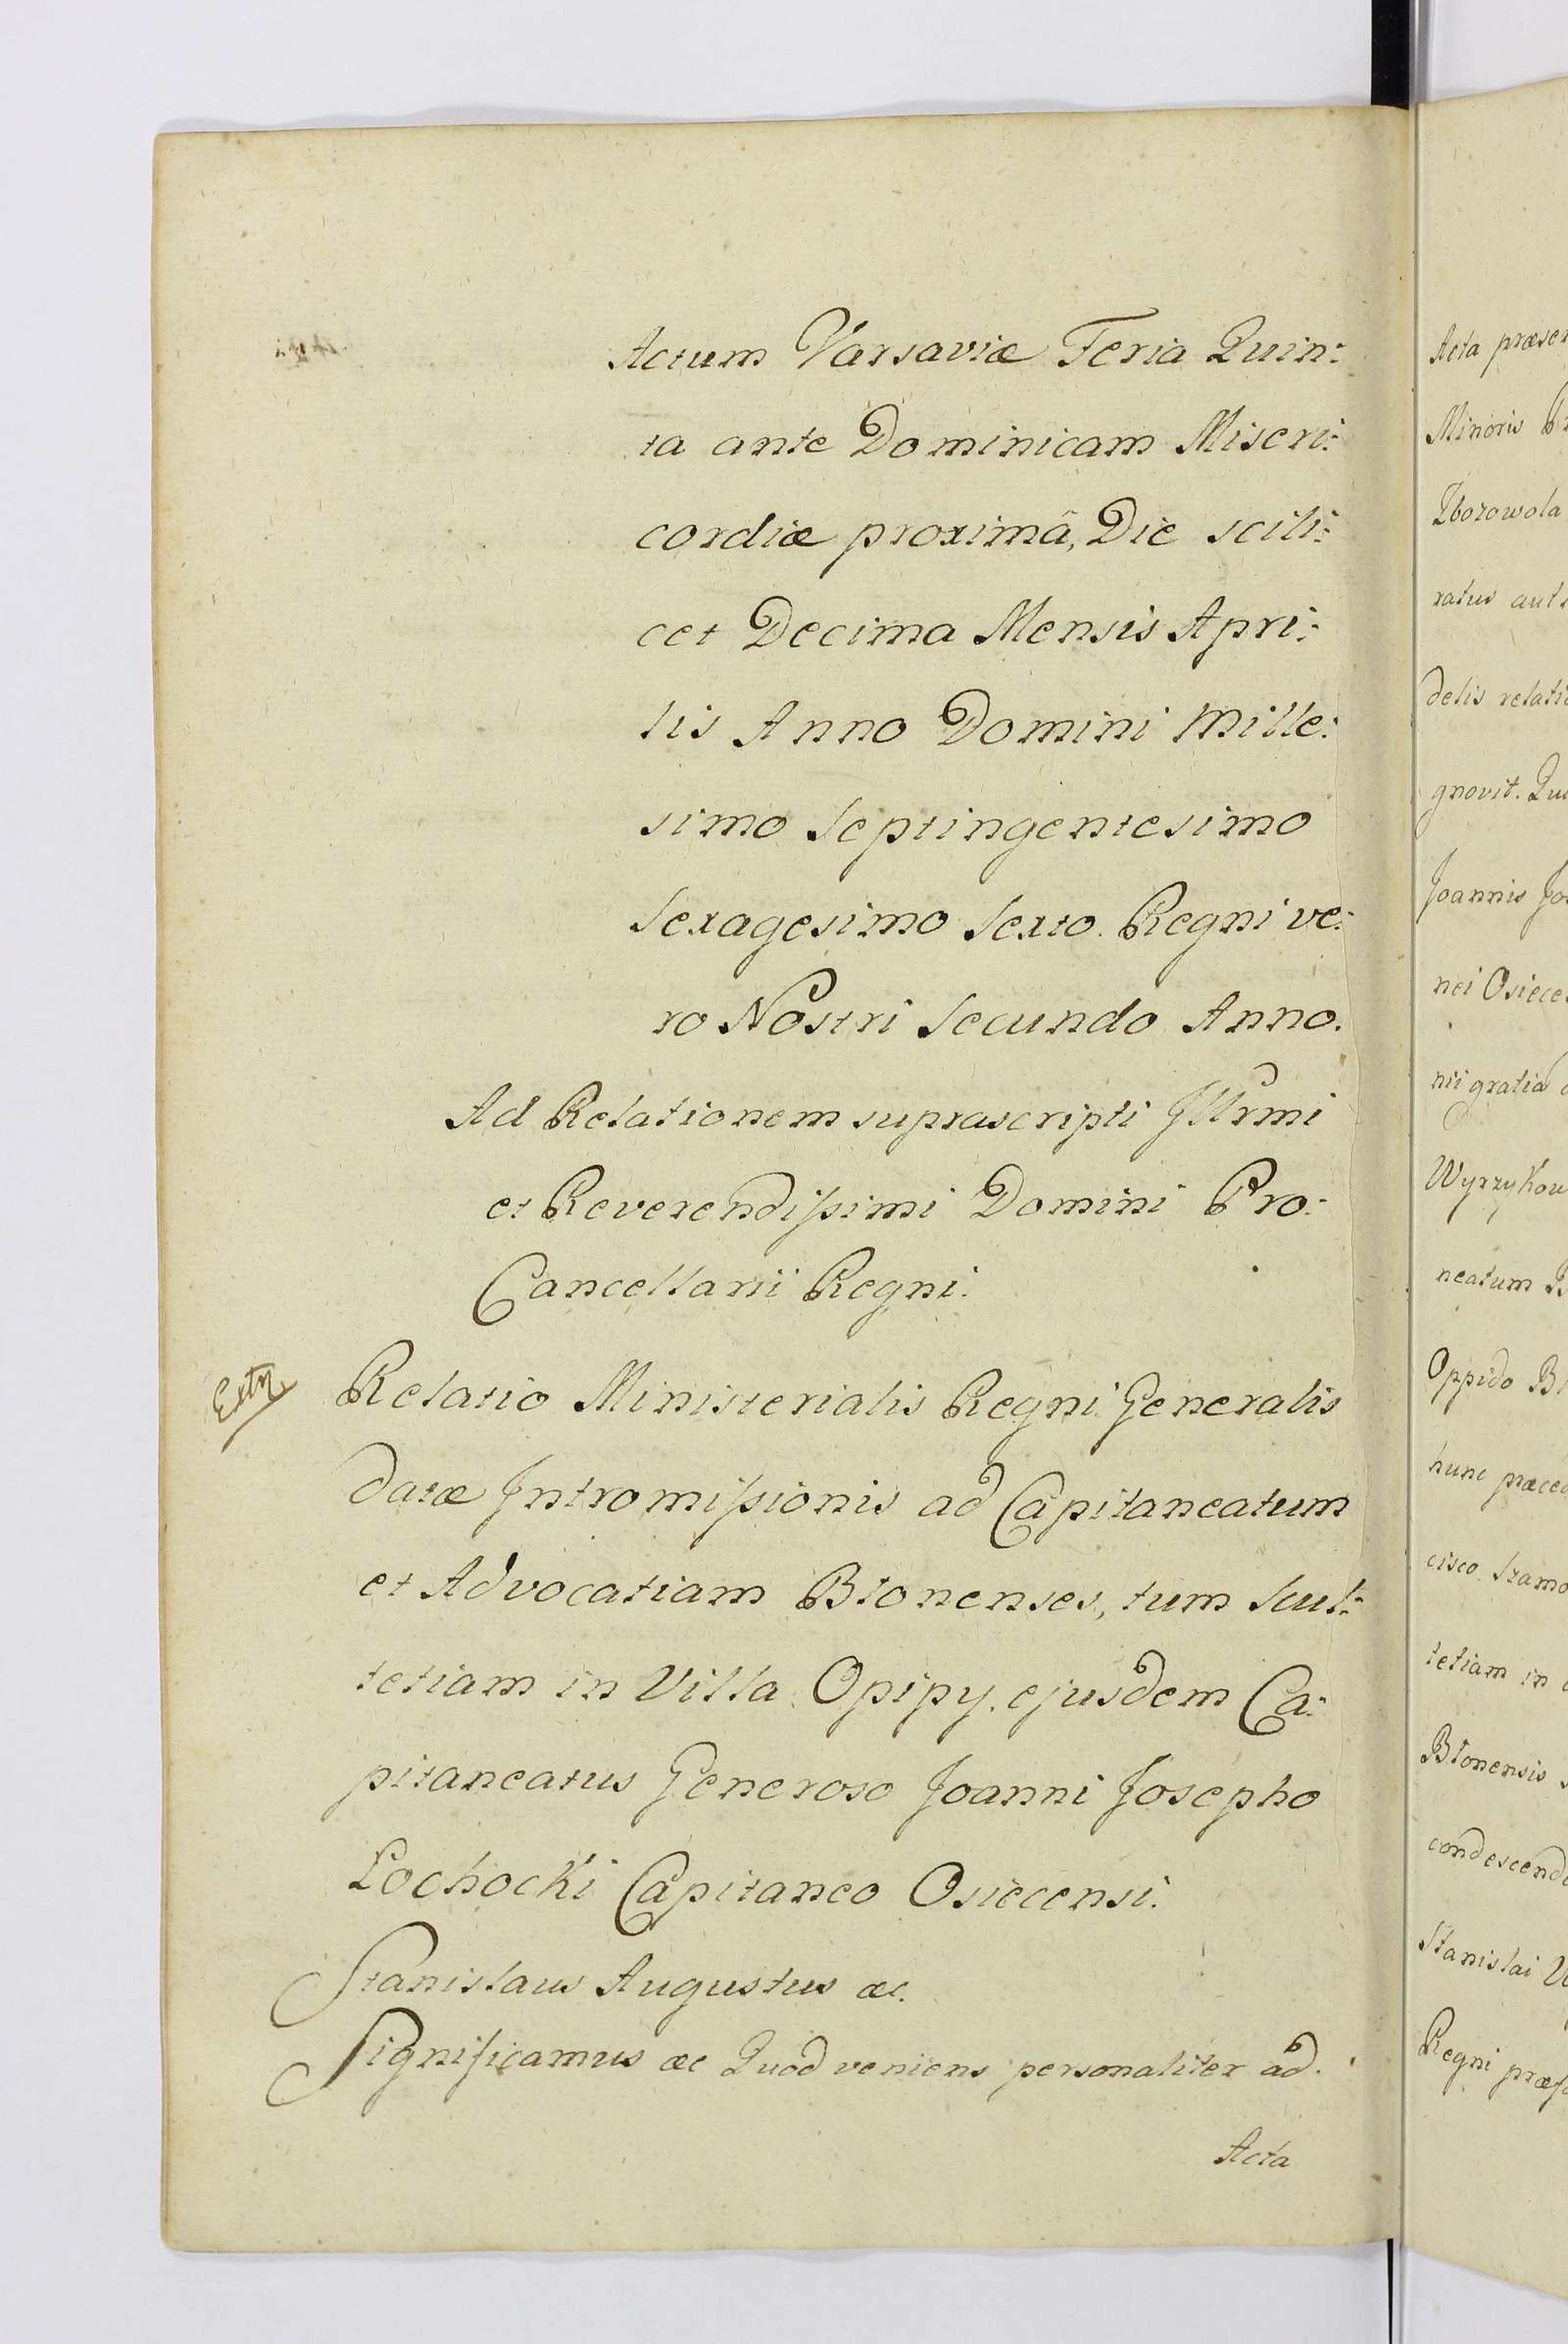 Actum Varsaviæ Feria Quin:
ta ante Dominicam Miseri:
cordiæ proximâ, Die scili:
cet Decima Mensis Apri:
lis Anno Domini Mille:
simo Septingentesimo
Sexagesimo Sexto. Regni ve:
ro Nostri Secundo Anno.
Ad Relationem suprascripti Jllrmi
et Reverendissimi Domini Pro:
Cancellarii Regni.
Extr
Relatio Ministerialis Regni Generalis
datæ Jntromissionis ad Capitaneatum
et Advocatiam Blonenses, tum Scul:
tetiam in Villa Opipy. ejusdem Ca:
pitaneatus Generoso Joanni Josepho
Łochocki Capitaneo Osiecensi.
Stanislaus Augustus æc.
Significamus æc Quod veniens personaliter ad.
Acta
Acta præsen
Minoris
Zborowola
ratus
delis relati
gnovit.
Joannis
nei Osiece
nii gratia
Wyrzykow
neatum
Oppido
hunc præce
cisco
tetiam in
Blonensis
condescend
Stanislai
Regni